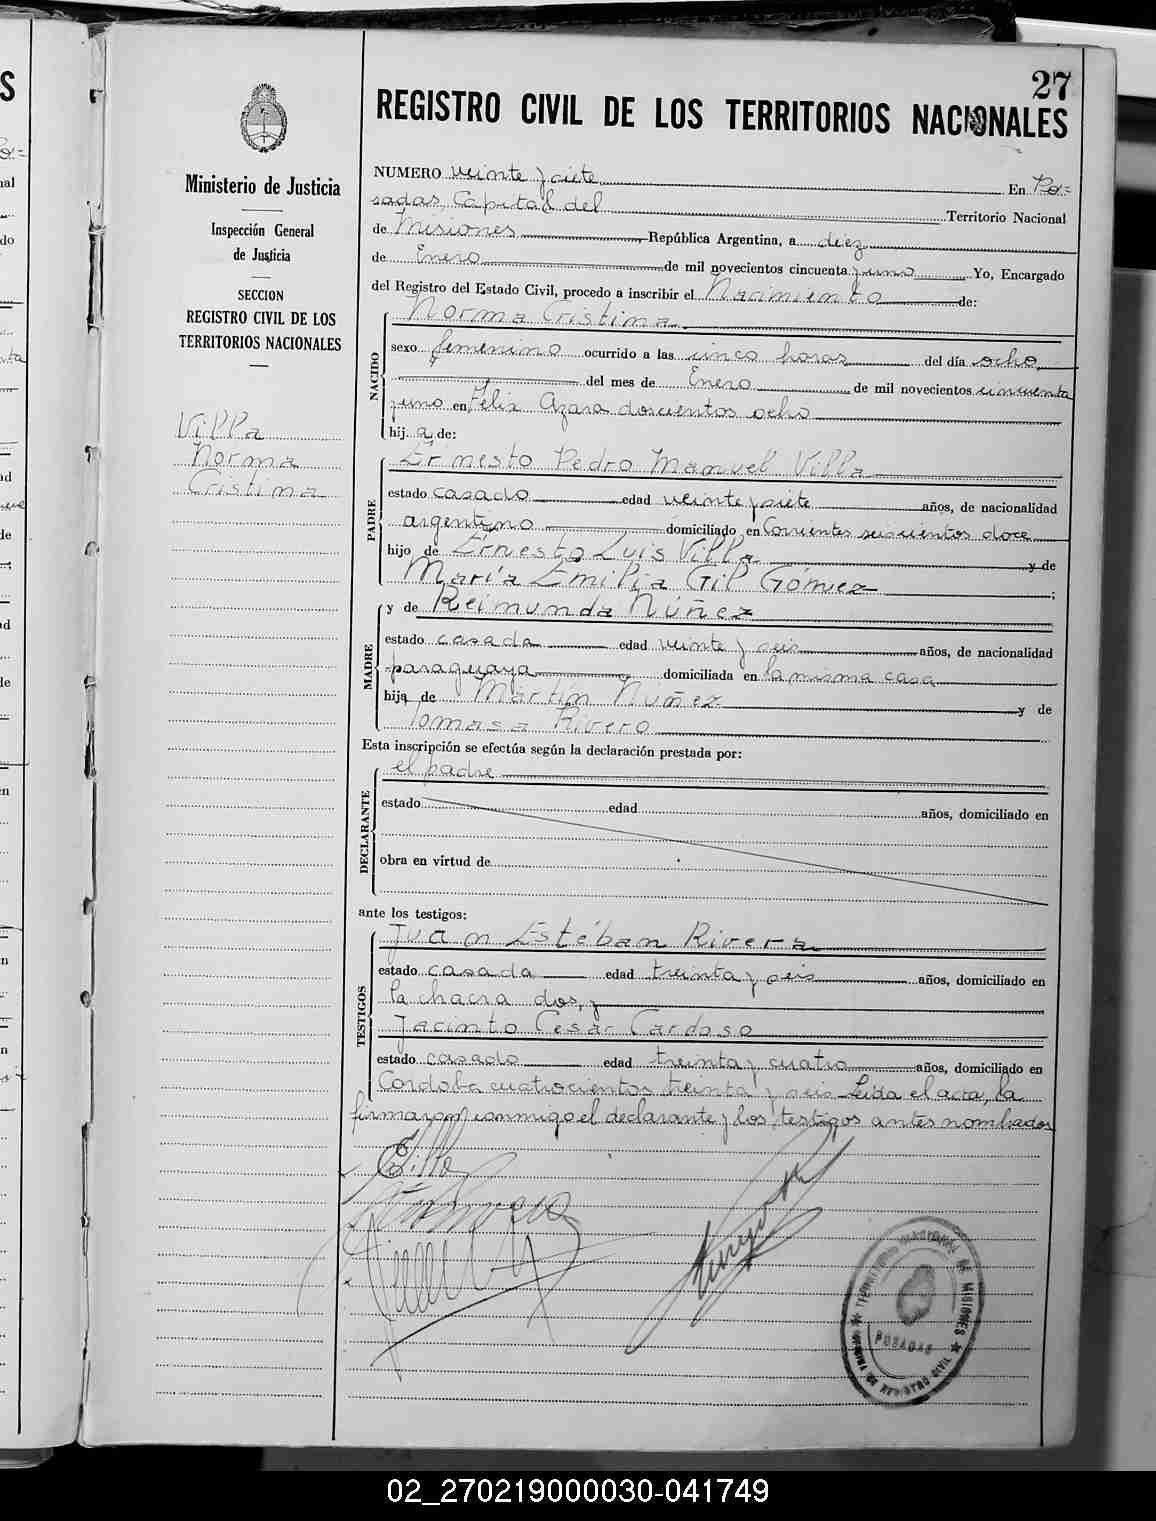 27
REGISTRO CIVIL DE LOS TERRITORIOS NACIONALES
Ministerio de Justicia
Inspección General
de Justicia
SECCION
REGISTRO CIVIL DE LOS
TERRITORIOS NACIONALES
Villa
Norma
Cristina
NUMERO veinte y siete En Po=
sadas, Capital del Territorio Nacional
de Misiones, República Argentina, a diez
de Enero de mil novecientos cincuenta y uno Yo, Encargado
del Registro del Estado Civil, procedo a inscribir el Nacimiento de:
NACIDO
Norma Cristina
sexo femenino ocurrido a las cinco horas del día ocho,
del mes de Enero de mil novecientos cincuenta
y uno en Félix Azara doscientos ocho
hij a de:
PADRE
Ernesto Pedro Manuel Villa
estado casado edad veinte y siete años, de nacionalidad
argentino domiciliado en Corrientes seiscientos doce
hijo de Ernesto Luis Villa y de
María Emilia Gil Gómez ;
MADRE
y de Reimunda Núñez
estado casada edad veinte y seis años, de nacionalidad
paraguaya domiciliada en la misma casa
hija de Martín Núñez y de
Tomasa Rivero
Esta inscripción se efectúa según la declaración prestada por:
DECLARANTE
el padre
estado edad años, domiciliado en
obra en virtud de
ante los testigos:
TESTIGOS
Juan Estéban Rivera
estado casada edad treinta y seis años, domiciliado en
la chacra dos, y
Jacinto César Cardoso
estado casado edad treinta y cuatro años, domiciliado en
Córdoba cuatrocientos treinta y seis Leída el acta, la
firmaron conmigo el declarante y los testigos antes nombrados
EVilla
TERRITORIO NACIONAL DE MISIONES
POSADAS
REGISTRO CIVIL
02_270219000030-041749